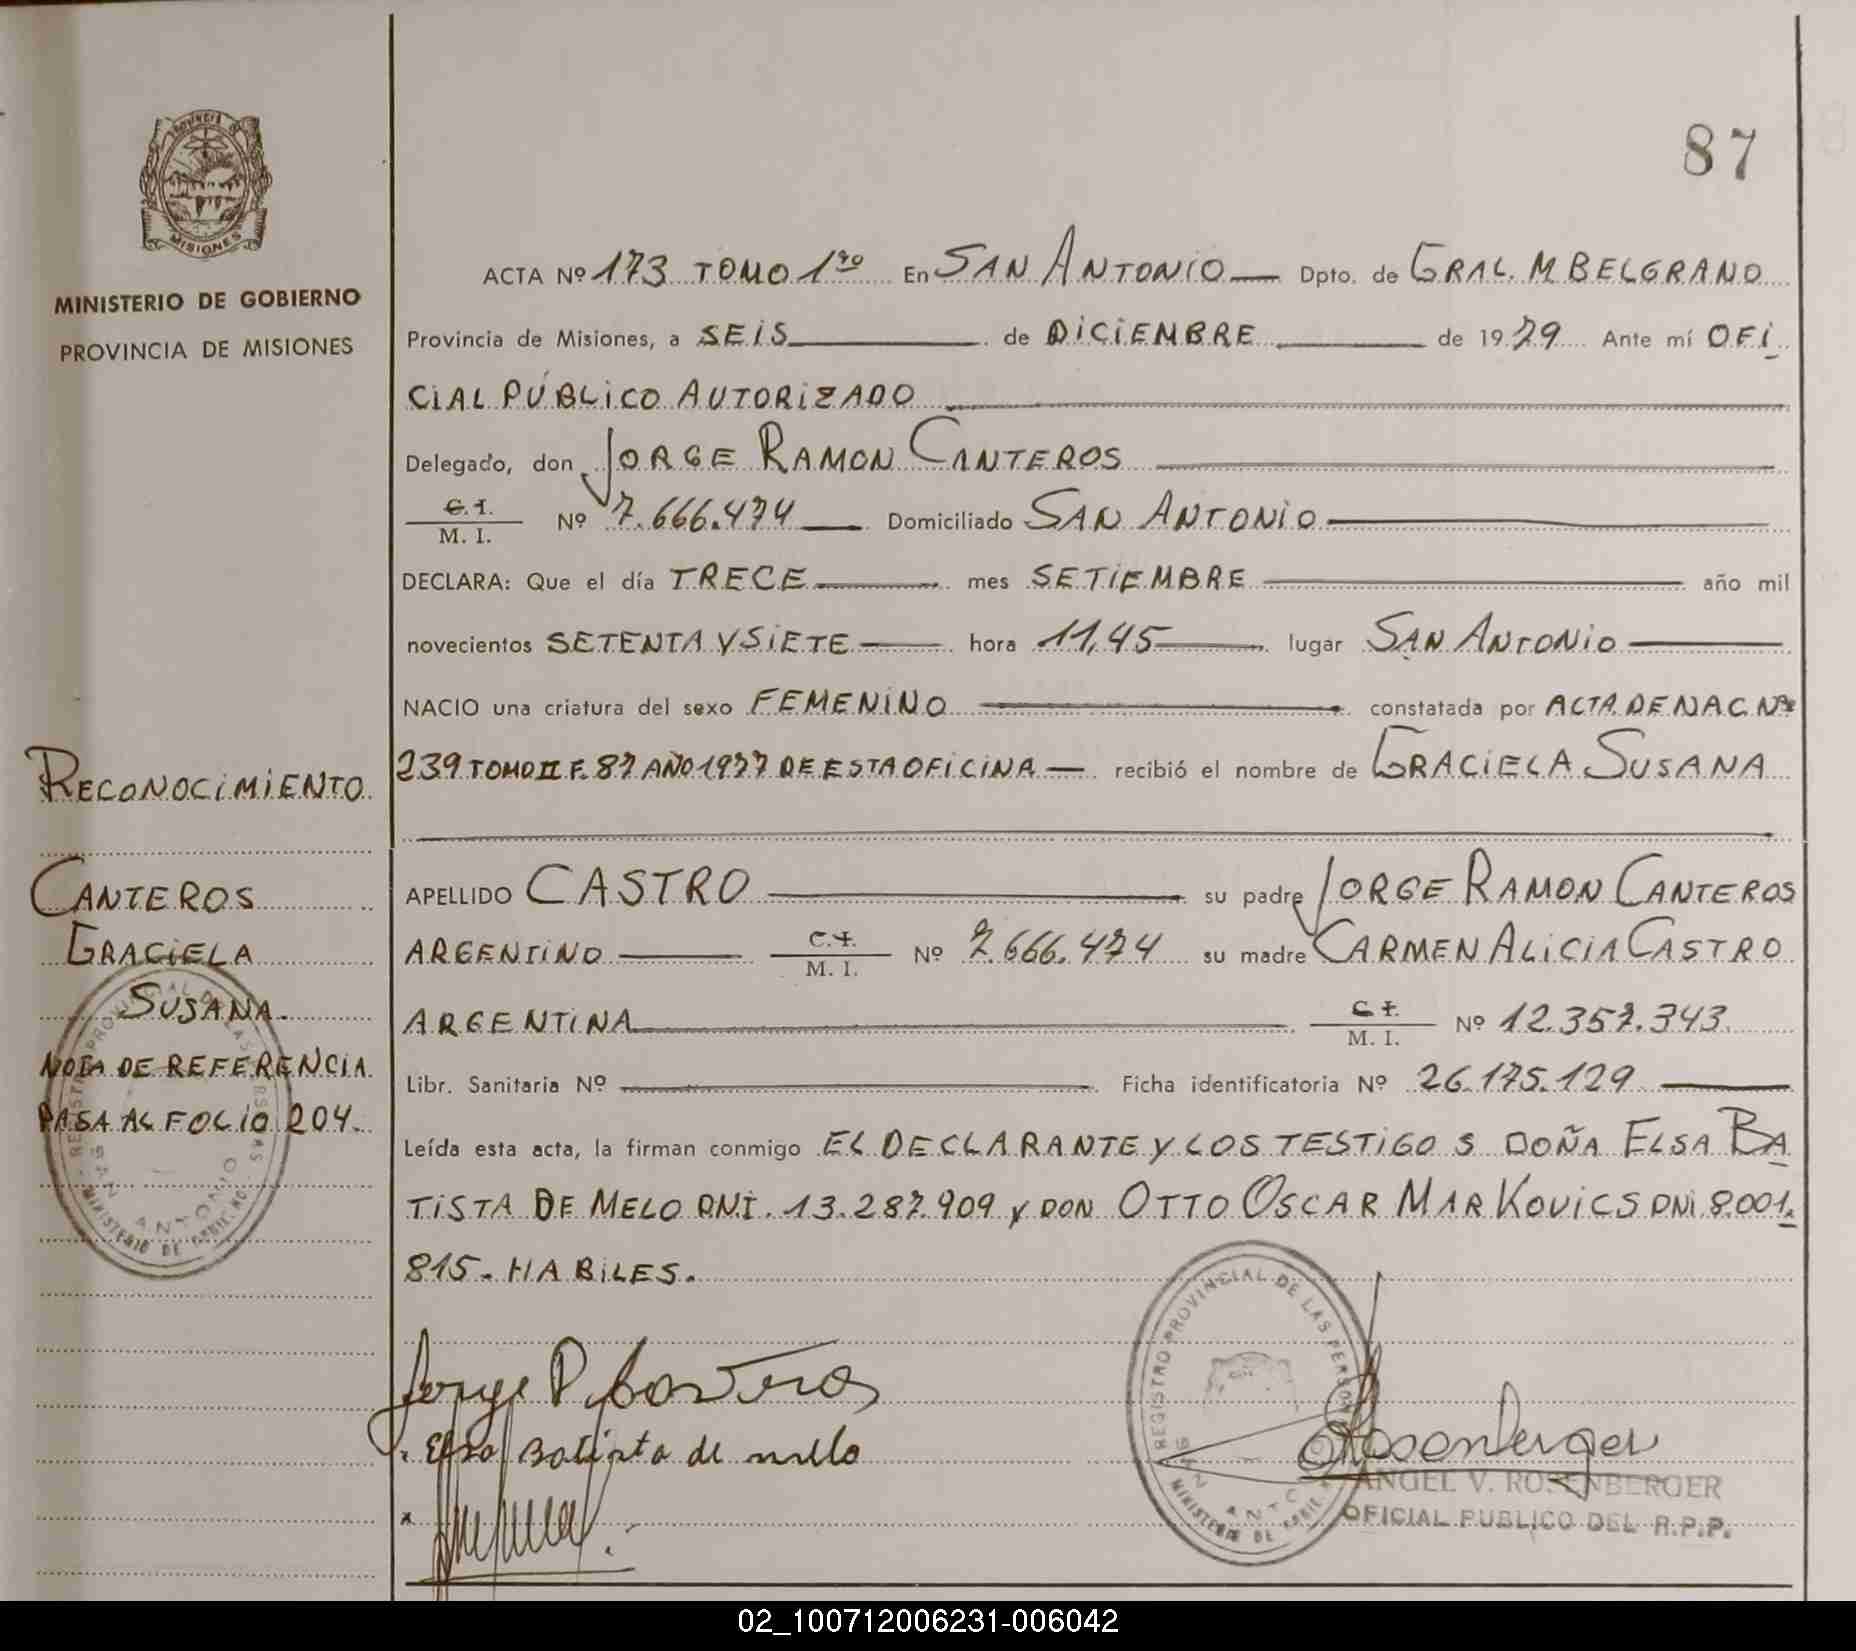 87
PROVINCIA
MISIONES
MINISTERIO DE GOBIERNO
PROVINCIA DE MISIONES
ACTA Nº 173 TOMO 1ro En SAN ANTONIO Dpto. de GRAL. M BELGRANO
Provincia de Misiones, a SEIS de DICIEMBRE de 1979 Ante mí OFI
CIAL PÚBLICO AUTORIZADO
Delegado, don JORGE RAMON CANTEROS
C. I. M. I. Nº 7.666.474 Domiciliado SAN ANTONIO
DECLARA: Que el día TRECE mes SETIEMBRE año mil
novecientos SETENTA Y SIETE hora 11,45 lugar SAN ANTONIO
NACIO una criatura del sexo FEMENINO constatada por ACTA DE NAC. Nº
239 TOMO II F. 87 AÑO 1977 DE ESTA OFICINA recibió el nombre de GRACIELA SUSANA
APELLIDO CASTRO su padre JORGE RAMON CANTEROS
ARGENTINO C. I. M. I. Nº 7.666.474 su madre CARMEN ALICIA CASTRO
ARGENTINA C. I. M. I. Nº 12.357.343
Libr. Sanitaria Nº Ficha identificatoria Nº 26.175.129
Leída esta acta, la firman conmigo EL DECLARANTE Y LOS TESTIGOS DOÑA ELSA BA
TISTA DE MELO DNI. 13.287.909 y DON OTTO OSCAR MARKOVICS DNI 8.001.
815. HABILES.
RECONOCIMIENTO
CANTEROS
GRACIELA
SUSANA.
NOTA DE REFERENCIA
PASA AL FOLIO 204.
REGISTRO PROVINCIAL DE LAS PERSONAS
SAN ANTONIO
MINISTERIO DE GOB.
Jorge R Canteros
Elsa Batista de mello
REGISTRO PROVINCIAL DE LAS PERSONAS
SAN ANTONIO
MINISTERIO DE GOB.
Rosenberger
ANGEL V. ROSENBERGER
OFICIAL PUBLICO DEL R.P.P.
02_100712006231-006042